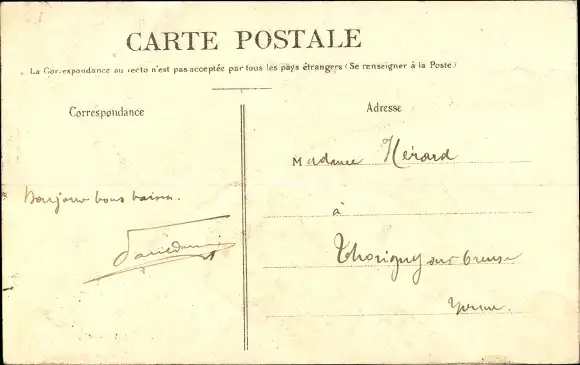 CARTE POSTALE
La Correspondance au recto n'est pas acceptée par tous les pays étrangers (Se renseigner à la Poste)
Correspondance
Bonjour bons baisers.
Adresse
Madame Hérard
à
Thorigny sur Oreuse
Yonne.